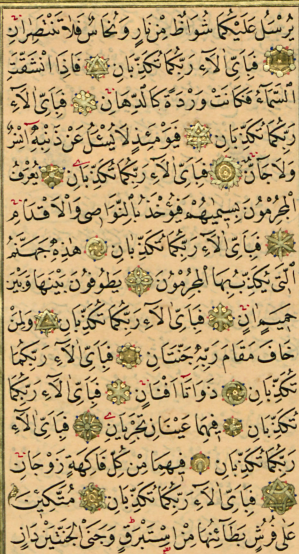 يُرْسَلُ عَلَيْكُمَا شُوَاظٌ مِنْ نَارٍ وَنُحَاسٌ فَلَا تَنْتَصِرَانِ
فَبِأَيِّ آلَاءِ رَبِّكُمَا تُكَذِّبَانِ فَإِذَا انْشَقَّتِ
السَّمَاءُ فَكَانَتْ وَرْدَةً كَالدِّهَانِ فَبِأَيِّ آلَاءِ
رَبِّكُمَا تُكَذِّبَانِ فَيَوْمَئِذٍ لَا يُسْئَلُ عَنْ ذَنْبِهِ اِنْسٌ
وَلَا جَانٌّ فَبِأَيِّ آلَاءِ رَبِّكُمَا تُكَذِّبَانِ يُعْرَفُ
الْمُجْرِمُونَ بِسِيمٰيهُمْ فَيُؤْخَذُ بِالنَّوَاصِي وَالْاَقْدَامِ
فَبِأَيِّ آلَاءِ رَبِّكُمَا تُكَذِّبَانِ هٰذِهِ جَهَنَّمُ
الَّتِي يُكَذِّبُ بِهَا الْمُجْرِمُونَ يَطُوفُونَ بَيْنَهَا وَبَيْنَ
حَمِيمٍ اٰنٍ فَبِأَيِّ آلَاءِ رَبِّكُمَا تُكَذِّبَانِ وَلِمَنْ
خَافَ مَقَامَ رَبِّهِ جَنَّتَانِ فَبِأَيِّ آلَاءِ رَبِّكُمَا
تُكَذِّبَانِ ذَوَاتَا اَفْنَانٍ فَبِأَيِّ آلَاءِ رَبِّكُمَا
تُكَذِّبَانِ فِيهِمَا عَيْنَانِ تَجْرِيَانِ فَبِأَيِّ آلَاءِ
رَبِّكُمَا تُكَذِّبَانِ فِيهِمَا مِنْ كُلِّ فَاكِهَةٍ زَوْجَانِ
فَبِأَيِّ آلَاءِ رَبِّكُمَا تُكَذِّبَانِ مُتَّكِئِينَ
عَلٰى فُرُشٍ بَطَائِنُهَا مِنْ اِسْتَبْرَقٍ وَجَنَى الْجَنَّتَيْنِ دَانٍ